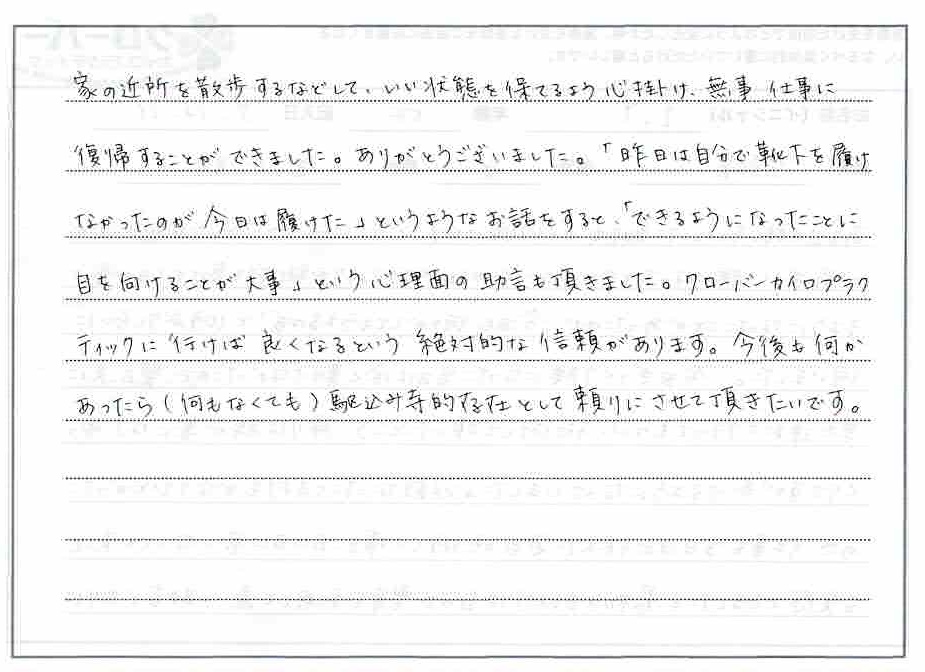 家の近所を散歩するなどして、いい状態を保てるよう心掛け、無事仕事に
復帰することができました。ありがとうございました。「昨日は自分で靴下を履け
なかったのが今日は履けた」というようなお話をすると、「できるようになったことに
目を向けることが大事」という心理面の助言も頂きました。クローバーカイロプラク
ティックに行けば良くなるという絶対的な信頼があります。今後も何か
あったら（何もなくても）駆込み寺的存在として頼りにさせて頂きたいです。